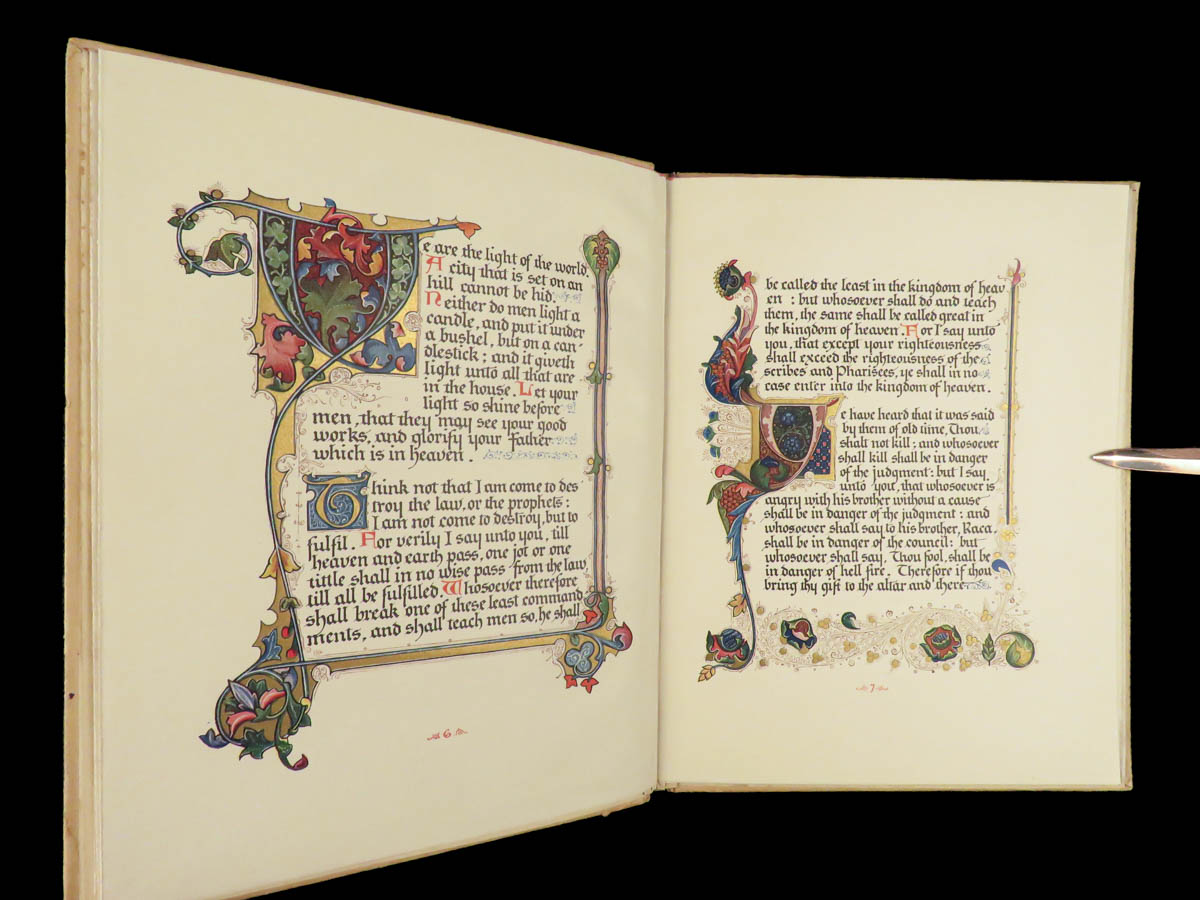 Ye are the light of the world.
A city that is set on an
hill cannot be hid.
Neither do men light a
candle, and put it under
a bushel, but on a can
dlestick; and it giveth
light unto all that are
in the house. Let your
light so shine before
men, that they may see your good
works, and glorify your Father
which is in heaven.
Think not that I am come to des
troy the law, or the prophets:
I am not come to destroy, but to
fulfil. For verily I say unto you, till
heaven and earth pass, one jot or one
tittle shall in no wise pass from the law,
till all be fulfilled. Whosoever therefore
shall break one of these least command
ments, and shall teach men so, he shall
6
be called the least in the kingdom of heav
en : but whosoever shall do and teach
them, the same shall be called great in
the kingdom of heaven. For I say unto
you, that except your righteousness
shall exceed the righteousness of the
scribes and Pharisees, ye shall in no
case enter into the kingdom of heaven.
Ye have heard that it was said
by them of old time, Thou
shalt not kill; and whosoever
shall kill shall be in danger
of the judgment: but I say
unto you, that whosoever is
angry with his brother without a cause
shall be in danger of the judgment: and
whosoever shall say to his brother, Raca
shall be in danger of the council: but
whosoever shall say, Thou fool, shall be
in danger of hell fire. Therefore if thou
bring thy gift to the altar and there
7